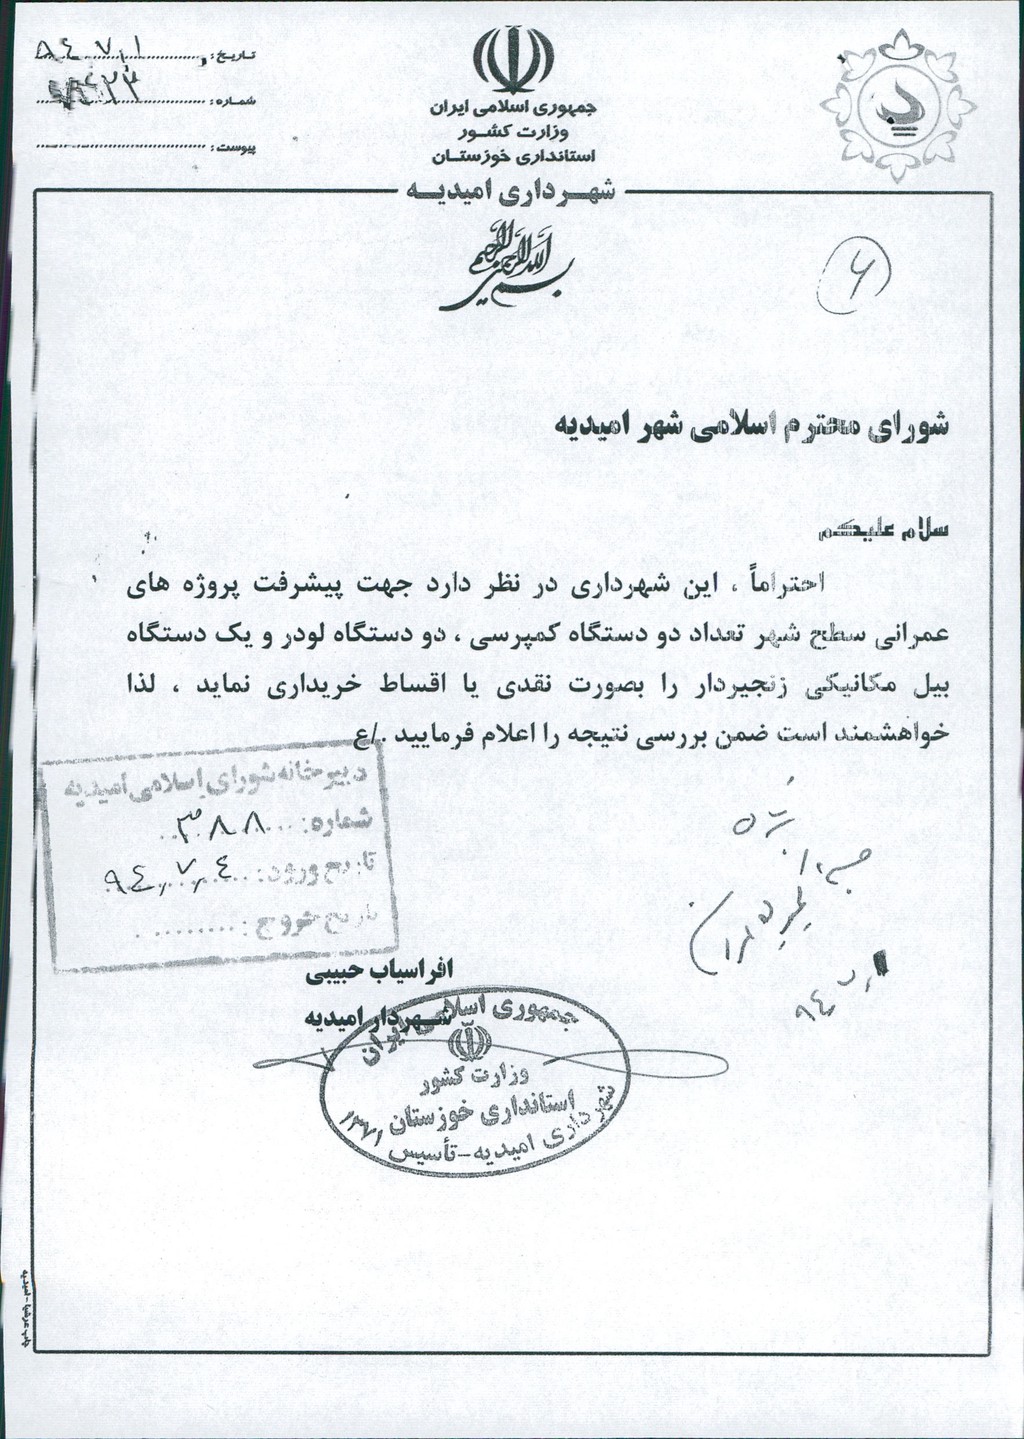 تاریخ : ۹۴.۷.۱
شماره :
پیوست :
جمهوری اسلامی ایران
وزارت کشـور
استانداری خوزستـان
شهــرداری امیدیــه
بسم الله الرحمن الرحیم
۶
شورای محترم اسلامی شهر امیدیه
سلام علیکم
احتراماً ، این شهرداری در نظر دارد جهت پیشرفت پروژه های
عمرانی سطح شهر تعداد دو دستگاه کمپرسی ، دو دستگاه لودر و یک دستگاه
بیل مکانیکی زنجیردار را بصورت نقدی یا اقساط خریداری نماید ، لذا
خواهشمند است ضمن بررسی نتیجه را اعلام فرمایید ./ع
دبیرخانه شورای اسلامی امیدیه
شماره: ۳۸۸
تاریخ ورود: ۹۴,۷,۴
تاریخ خروج:
افراسیاب حبیبی
شهردار امیدیه
جمهوری اسلامی ایران
وزارت کشور
استانداری خوزستان
شهرداری امیدیه-تأسیس ۱۳۷۱
چاپ عرشیا - امیدیه